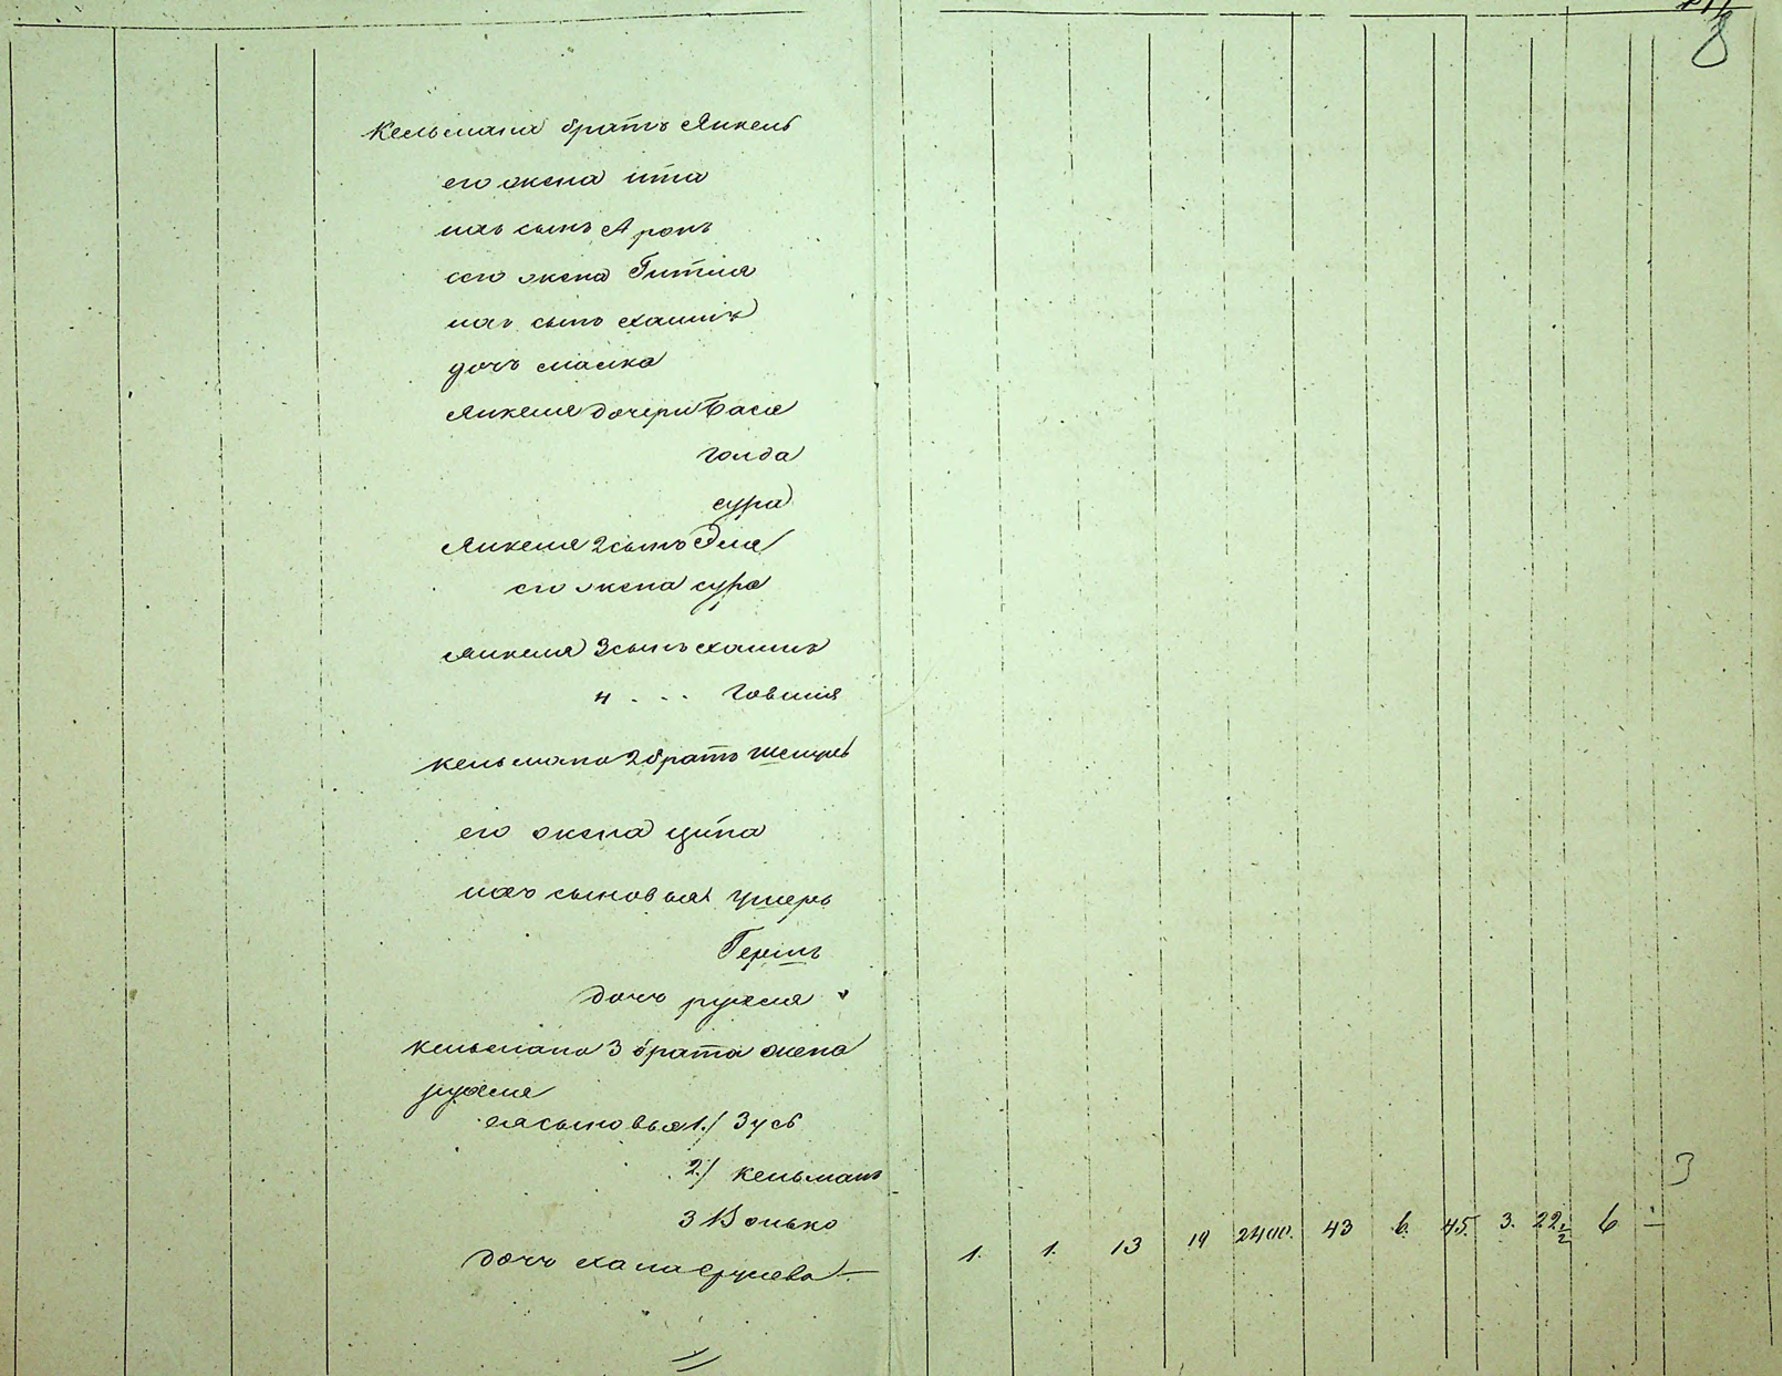 8
Кельмана братъ Янкель
его жена Ита
ихъ сынъ Аронъ
его жена Гитля
ихъ сынъ Хаимъ
дочь Малка
Янкеля дочери Бася
Голда
Сура
Янкеля 2 сынъ Эля
его жена Сура
Янкеля 3 сынъ Хаимъ
4 . - - Говшія
Кельмана 2 братъ
его жена Ципа
ихъ сыновья Ушеръ
Гершъ
дочь Рухля
Кельмана 3 брата жена
Рухля
ея сыновья 1./ Зусь
2./ Кельманъ
3 Волько
дочь Хана —
1. 1. 13 19 2400. 43 6. 45. 3. 22 1/2 6 —
3